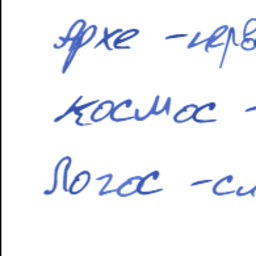 Архе - перв
космос -
Логос - сл